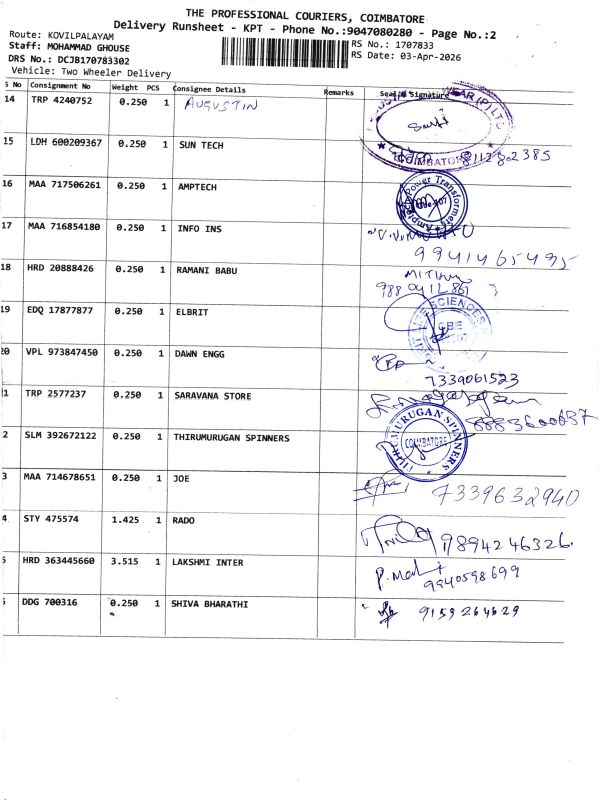 THE PROFESSIONAL COURIERS, COIMBATORE
Delivery Runsheet - KPT - Phone No.:9047080280 - Page No.:2
Route: KOVILPALAYAM
Staff: MOHAMMAD GHOUSE
DRS No.: DCJB170783302
Vehicle: Two Wheeler Delivery
RS No.: 1707833
RS Date: 03-Apr-2026
S No Consignment No Weight PCS Consignee Details Remarks Seal & Signature
14 TRP 4240752 0.250 1 AUGUSTIN
COIMBATORE
15 LDH 600209367 0.250 1 SUN TECH 8112802385
16 MAA 717506261 0.250 1 AMPTECH
Power Transformers
17 MAA 716854180 0.250 1 INFO INS
9941465495
18 HRD 20888426 0.250 1 RAMANI BABU
19 EDQ 17877877 0.250 1 ELBRIT
SCIENCES
CBE
20 VPL 973847450 0.250 1 DAWN ENGG
7339061523
1 TRP 2577237 0.250 1 SARAVANA STORE
8883600687
2 SLM 392672122 0.250 1 THIRUMURUGAN SPINNERS
THIRUMURUGAN SPINNERS
COIMBATORE
3 MAA 714678651 0.250 1 JOE
7339632940
4 STY 475574 1.425 1 RADO
9894246326
5 HRD 363445660 3.515 1 LAKSHMI INTER
9940598699
DDG 700316 0.250 1 SHIVA BHARATHI
9159264629